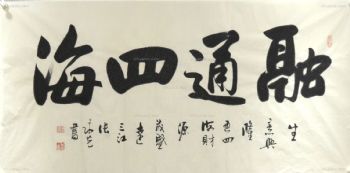 融通四海
生
意興
隆
通四
海財
源
茂盛
達
三江
書